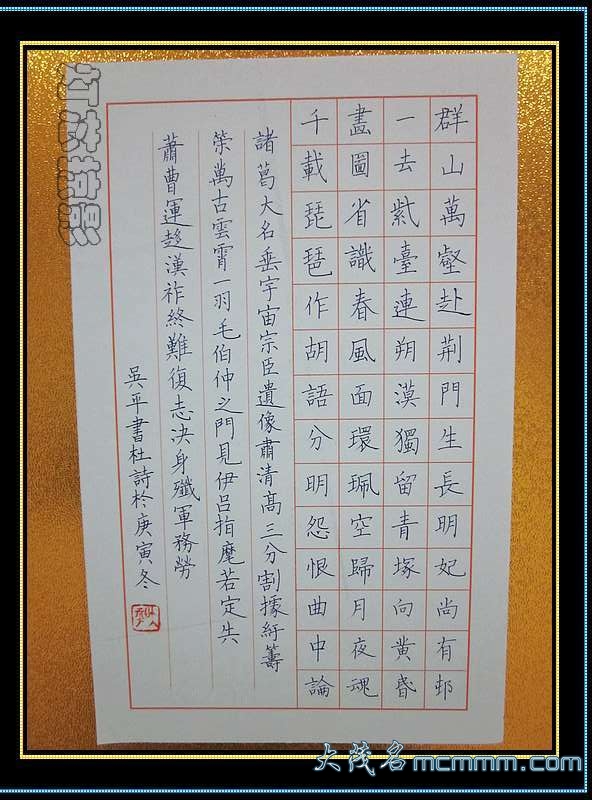 群山萬壑赴荆門生長明妃尚有邨
一去紫臺連朔漠獨留青塚向黄昬
畫圖省識春風面環珮空歸月夜魂
千載琵琶作胡語分明怨恨曲中論
諸葛大名垂宇宙宗臣遺像肅清高三分割據紆籌
筞萬古雲霄一羽毛伯仲之門見伊吕指麾若定失
蕭曹運趍漢祚終難復志决身殲軍務勞
吴平書杜詩於庚寅冬
灯芯摄影
大茂名 mcmmm.com